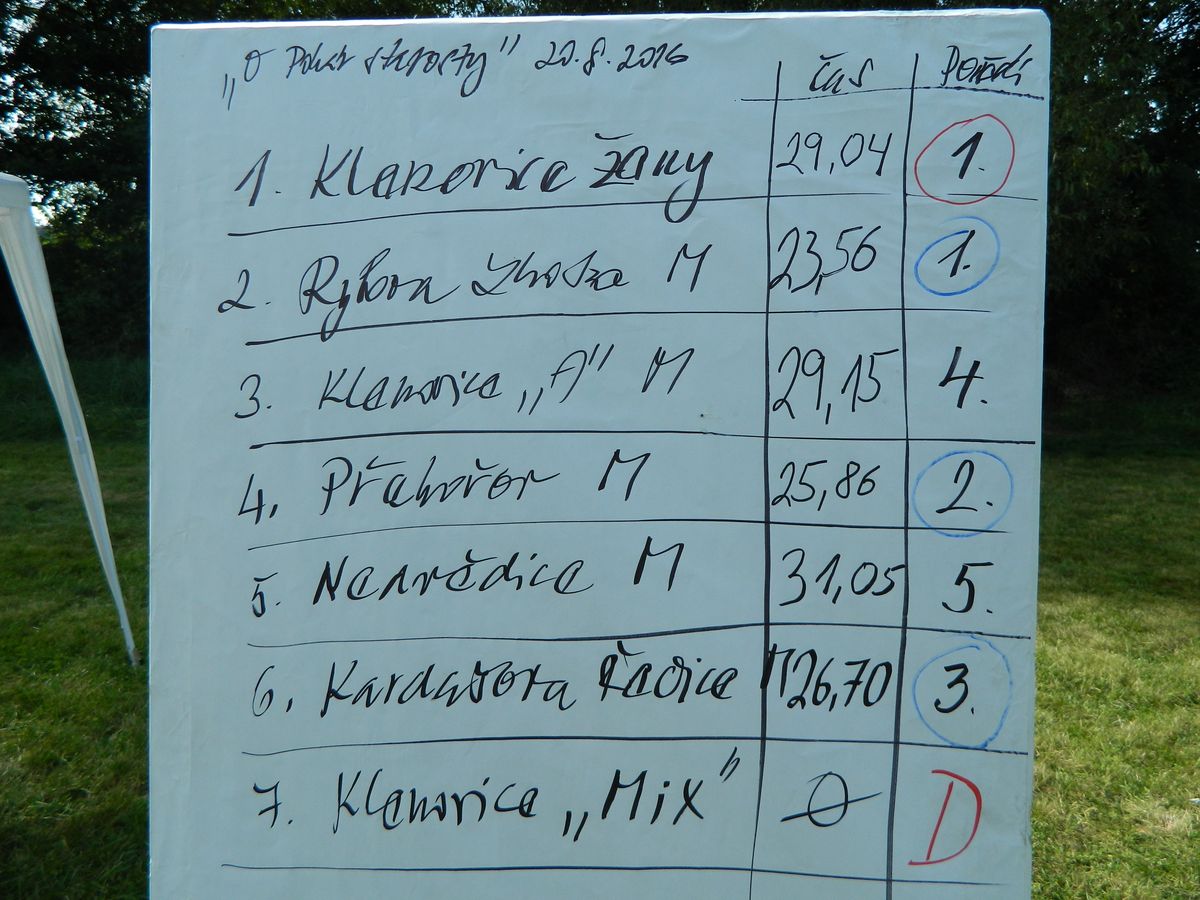 „O Pohár starosty" 20.8.2016 čas Pořadí
1. Klenovice ženy 29,04 1.
2. Rybova Lhota M 23,56 1.
3. Klenovice „A" M 29,15 4.
4. Přehořov M 25,86 2.
5. Nedvědice M 31,05 5.
6. Kardašova Řečice M 26,70 3.
7. Klenovice „Mix" 0 D